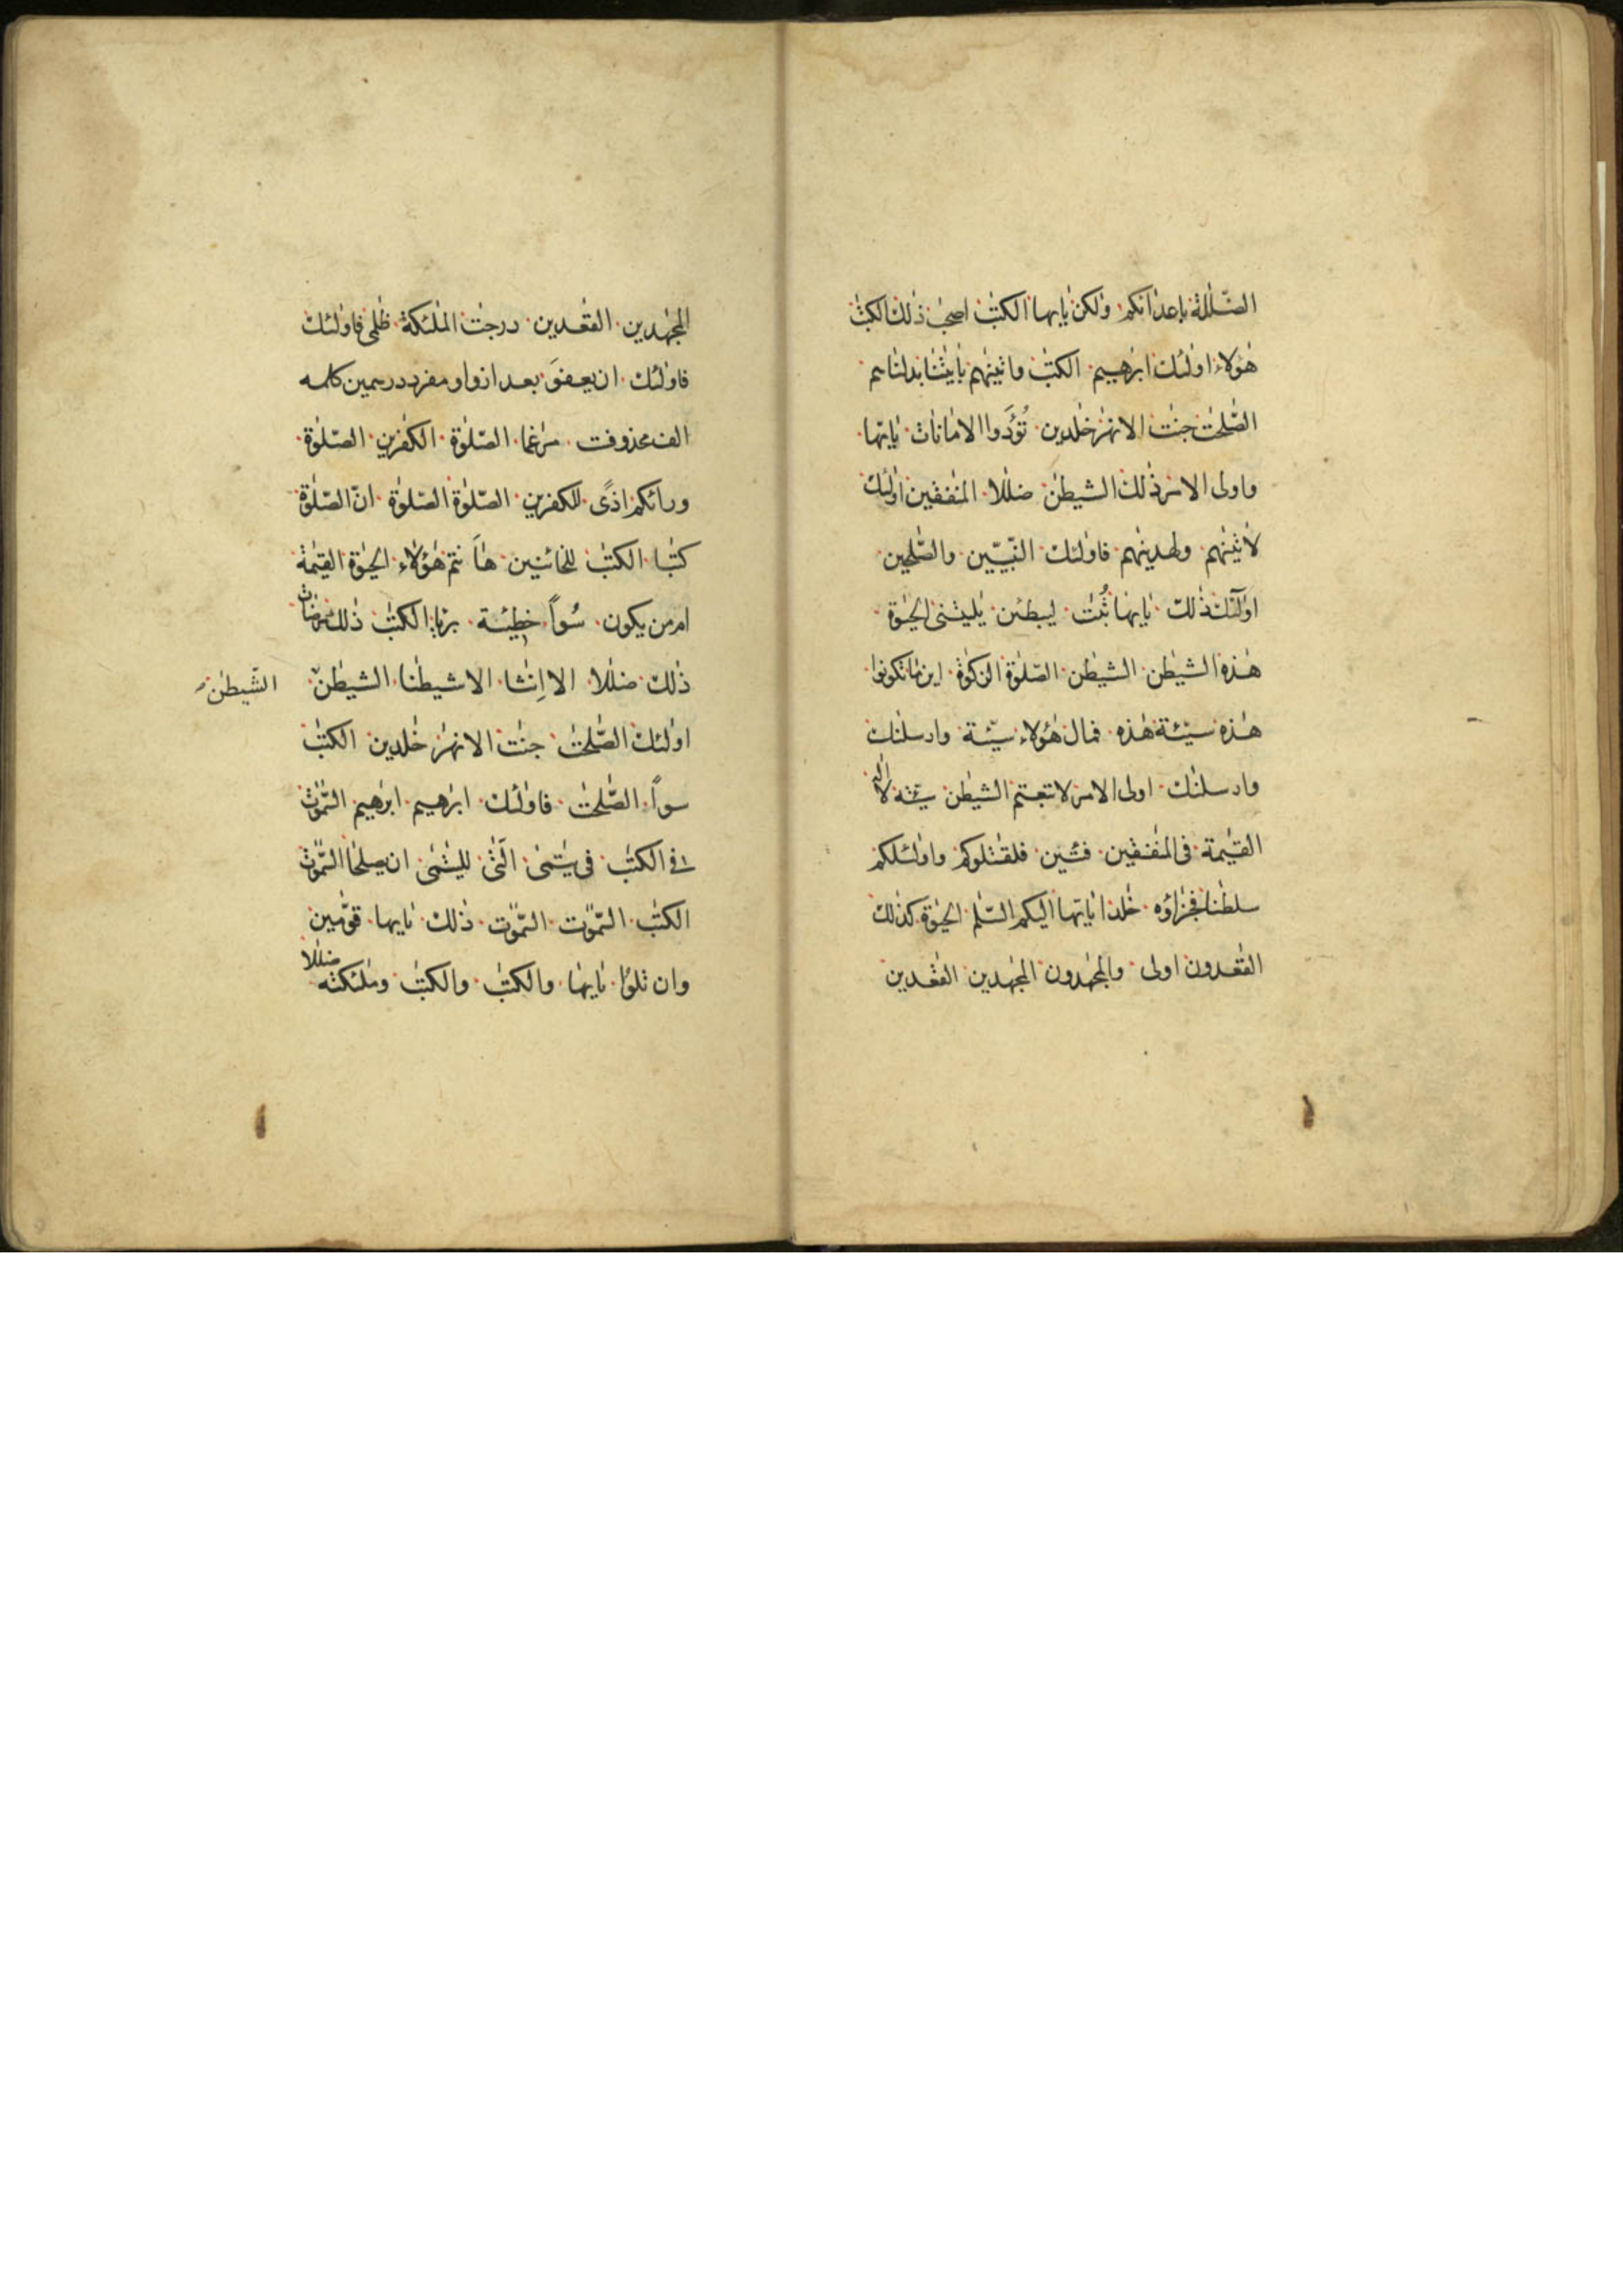 الضّلٰلة باعدٰائكم ولٰكن يٰايها الكتٰب اصحٰب ذٰلك الكتٰب
هٰؤلاء اولٰئك ابرٰهيم الكتٰب واتينٰهم بايٰتنا بدلنٰاهم
الصّٰلحٰت جنّٰت الانهٰر خٰلدين تُؤَدّوا الامٰانات يٰايّها
واولى الامر ذٰلك الشيطٰن ضلٰلا المنٰفقين اولٰئك
لاٰتينٰهم ولهدينٰهم فاولٰئك النّبيّين والصّٰلحين
اولٰئك ذٰلك يٰايها ثُبٰات ليبطئن يٰليتنى الحيٰوة
هٰذه الشيطٰن الشيطٰن الصّلٰوة الزكٰوة اين مٰا تكونوا
هٰذه سيّئة هٰذه فمال هٰؤلاء سيّئة وارسلنٰك
وارسلنٰك اولى الامر لاتبعتم الشيطٰن سيّئة لا
القيٰمة فى المنٰفقين فئتين فلقٰتلوكم واولٰئكم
سلطٰنا فجزٰاؤه خٰلدا يٰايّها اليكم السّلٰم الحيٰوة كذٰلك
القٰعدون اولى والمجٰهدون المجٰهدين القٰعدين
المجٰهدين القٰعدين درجٰت الملٰئكة ظٰلمى فاولٰئك
فاولٰئك ان يعفوَ بعد از واو مفرد در همين كلمه
الف محذوفت مرٰغما الصّلٰوة الكٰفرين الصّلٰوة
ورائكم اذًى للكٰفرين الصّلٰوة الصّلٰوة انّ الصّلٰوة
كتٰبا الكتٰب للخائنين هٰاَنتم هٰؤلٰاء الحيٰوة القيٰمة
ام من يكون سُوأً خطيئة برئا الكتٰب ذٰلك مرضٰات
ذٰلك ضلٰلا الا اِنٰثا الا شيطٰنا الشيطٰن
الشّيطٰن
اولٰئك الصّٰلحٰت جنّٰت الانهٰر خٰلدين الكتٰب
سوأً الصّٰلحٰت فاولٰئك ابرٰهيم ابرٰهيم السّمٰوٰت
فى الكتٰب فى يتٰمى الّٰتى لليتٰمى ان يصلحٰا السّمٰوٰت
الكتٰب السّمٰوٰت السّمٰوٰت ذٰلك يٰايها قوّٰمين
وان تلوٗا يٰايها والكتٰب والكتٰب وملٰئكته ضلٰلا